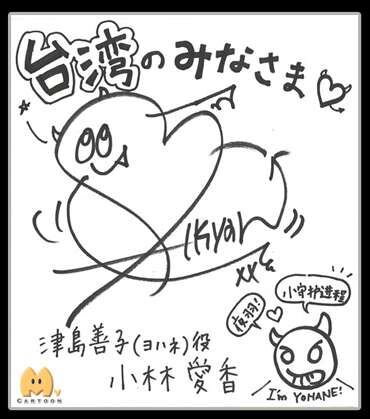 台湾のみなさま
Ikyan
夜羽!
小守护进程
津島善子(ヨハネ)役
小林愛香
I'm YOHANE!
CARTOON